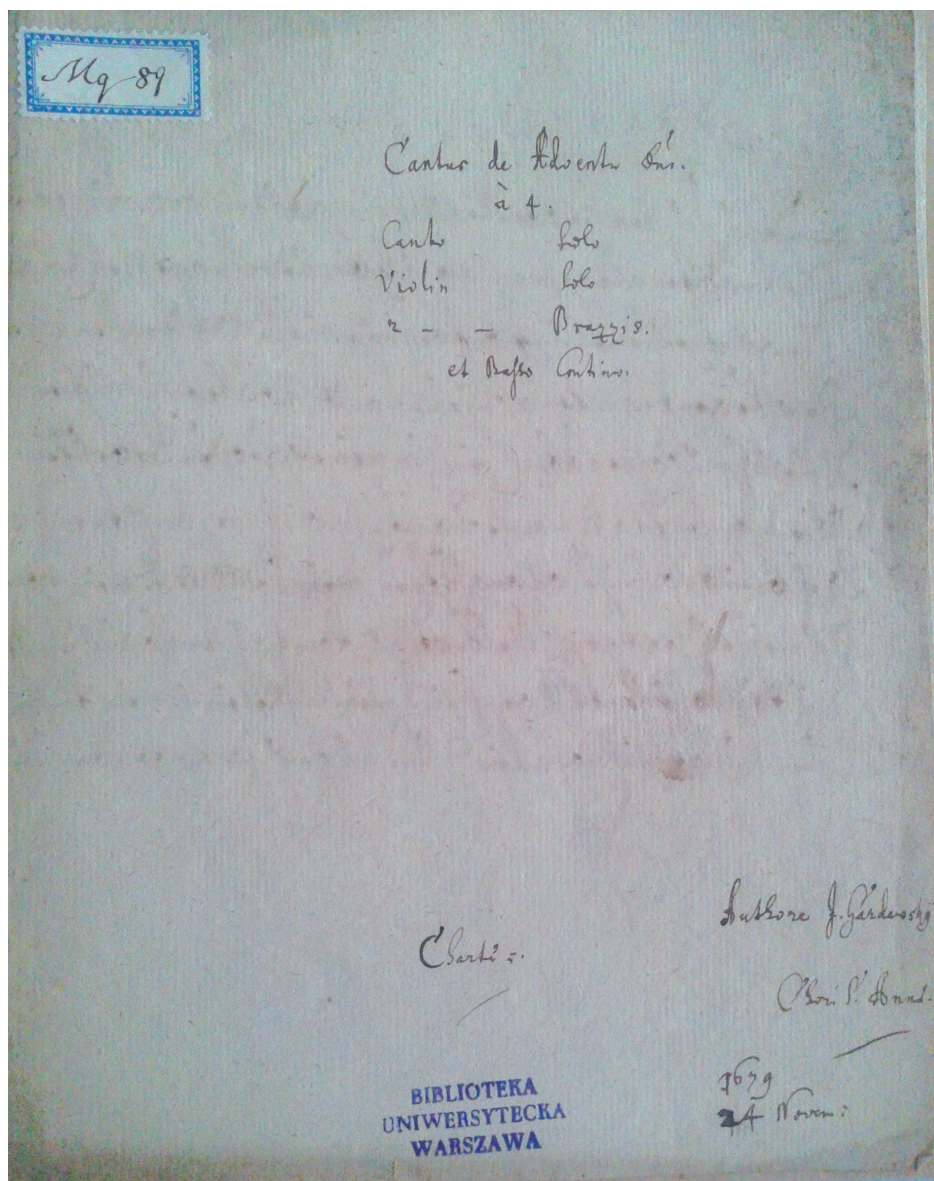 Mq 89
Cantus de Adventu Dni.
à 4.
Canto Solo
Violin Solo
2 - - Brazzis.
et Basso Contino.
Authore J. Gardewsky
Charte 5.
Chori S. Anna.
1679
24 Novem:
BIBLIOTEKA
UNIWERSYTECKA
WARSZAWA